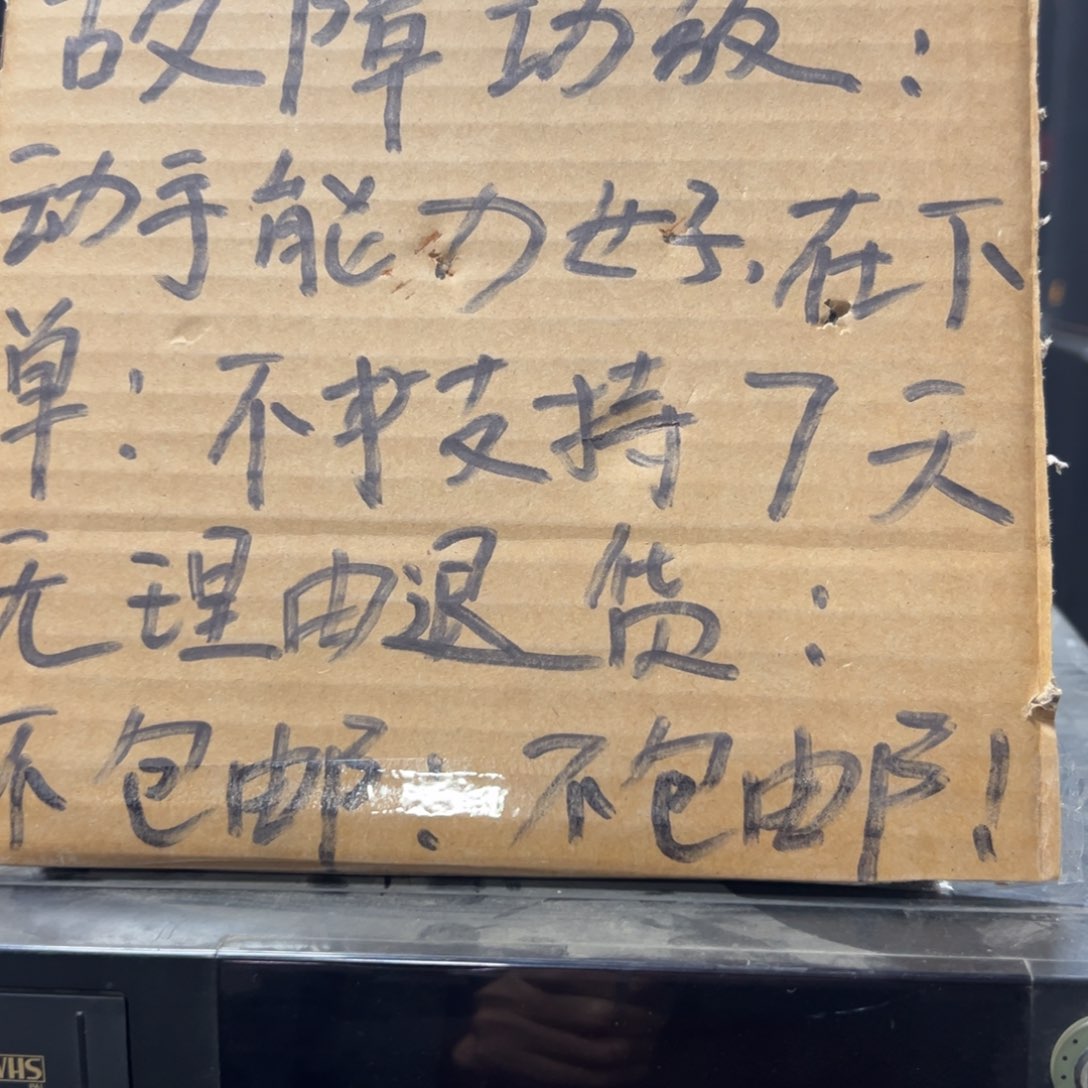 故障功放：
动手能力好.在下
单：不技持7天
无理由退货：
不包邮：不包邮！
VHS